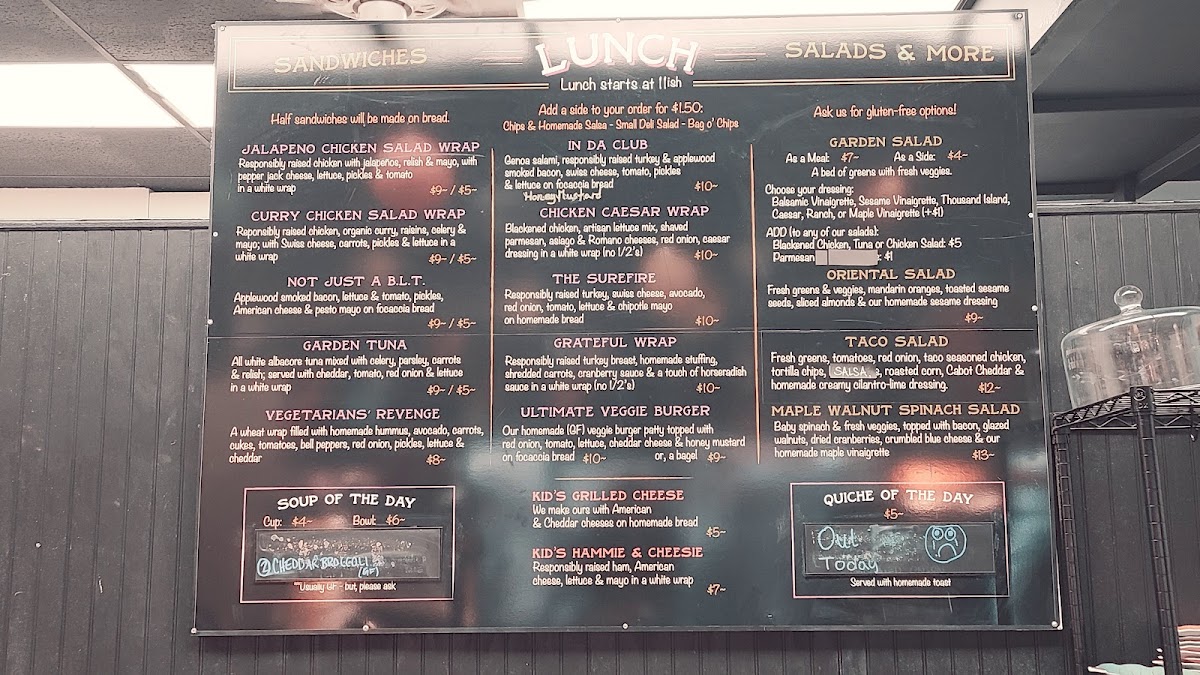 SANDWICHES
LUNCH
SALADS & MORE
Lunch starts at 11ish
Half sandwiches will be made on bread.
JALAPENO CHICKEN SALAD WRAP
Responsibly raised chicken with jalapeños, relish & mayo, with
pepper jack cheese, lettuce, pickles & tomato
in a white wrap
$9~ / $5~
CURRY CHICKEN SALAD WRAP
Reponsibly raised chicken, organic curry, raisins, celery &
mayo; with Swiss cheese, carrots, pickles & lettuce in a
white wrap
$9~ / $5~
NOT JUST A B.L.T.
Applewood smoked bacon, lettuce & tomato, pickles,
American cheese & pesto mayo on focaccia bread
$9~ / $5~
GARDEN TUNA
All white albacore tuna mixed with celery, parsley, carrots
& relish; served with cheddar, tomato, red onion & lettuce
in a white wrap
$9~ / $5~
VEGETARIANS' REVENGE
A wheat wrap filled with homemade hummus, avocado, carrots,
cukes, tomatoes, bell peppers, red onion, pickles, lettuce &
cheddar
$8~
SOUP OF THE DAY
Cup: $4~ Bowl: $6~
CHEDDAR BROCCOLI
(GF)
**Usually GF - but, please ask
Add a side to your order for $1.50:
Chips & Homemade Salsa - Small Deli Salad - Bag o' Chips
IN DA CLUB
Genoa salami, responsibly raised turkey & applewood
smoked bacon, swiss cheese, tomato, pickles
& lettuce on focaccia bread
$10~
Honey Mustard
CHICKEN CAESAR WRAP
Blackened chicken, artisan lettuce mix, shaved
parmesan, asiago & Romano cheeses, red onion, caesar
dressing in a white wrap (no 1/2's)
$10~
THE SUREFIRE
Responsibly raised turkey, swiss cheese, avocado,
red onion, tomato, lettuce & chipotle mayo
on homemade bread
$10~
GRATEFUL WRAP
Responsibly raised turkey breast, homemade stuffing,
shredded carrots, cranberry sauce & a touch of horseradish
sauce in a white wrap (no 1/2's)
$10~
ULTIMATE VEGGIE BURGER
Our homemade (GF) veggie burger patty topped with
red onion, tomato, lettuce, cheddar cheese & honey mustard
on focaccia bread $10~ or, a bagel $9~
KID'S GRILLED CHEESE
We make ours with American
& Cheddar cheeses on homemade bread
$5~
KID'S HAMMIE & CHEESIE
Responsibly raised ham, American
cheese, lettuce & mayo in a white wrap
$7~
Ask us for gluten-free options!
GARDEN SALAD
As a Meal: $7~ As a Side: $4~
A bed of greens with fresh veggies.
Choose your dressing:
Balsamic Vinaigrette, Sesame Vinaigrette, Thousand Island,
Caesar, Ranch, or Maple Vinaigrette (+$1)
ADD (to any of our salads):
Blackened Chicken, Tuna or Chicken Salad: $5
Parmesan : $1
ORIENTAL SALAD
Fresh greens & veggies, mandarin oranges, toasted sesame
seeds, sliced almonds & our homemade sesame dressing
$9~
TACO SALAD
Fresh greens, tomatoes, red onion, taco seasoned chicken,
tortilla chips, SALSA, roasted corn, Cabot Cheddar &
homemade creamy cilantro-lime dressing.
$12~
MAPLE WALNUT SPINACH SALAD
Baby spinach & fresh veggies, topped with bacon, glazed
walnuts, dried cranberries, crumbled blue cheese & our
homemade maple vinaigrette
$13~
QUICHE OF THE DAY
$5~
Out
Today
Served with homemade toast